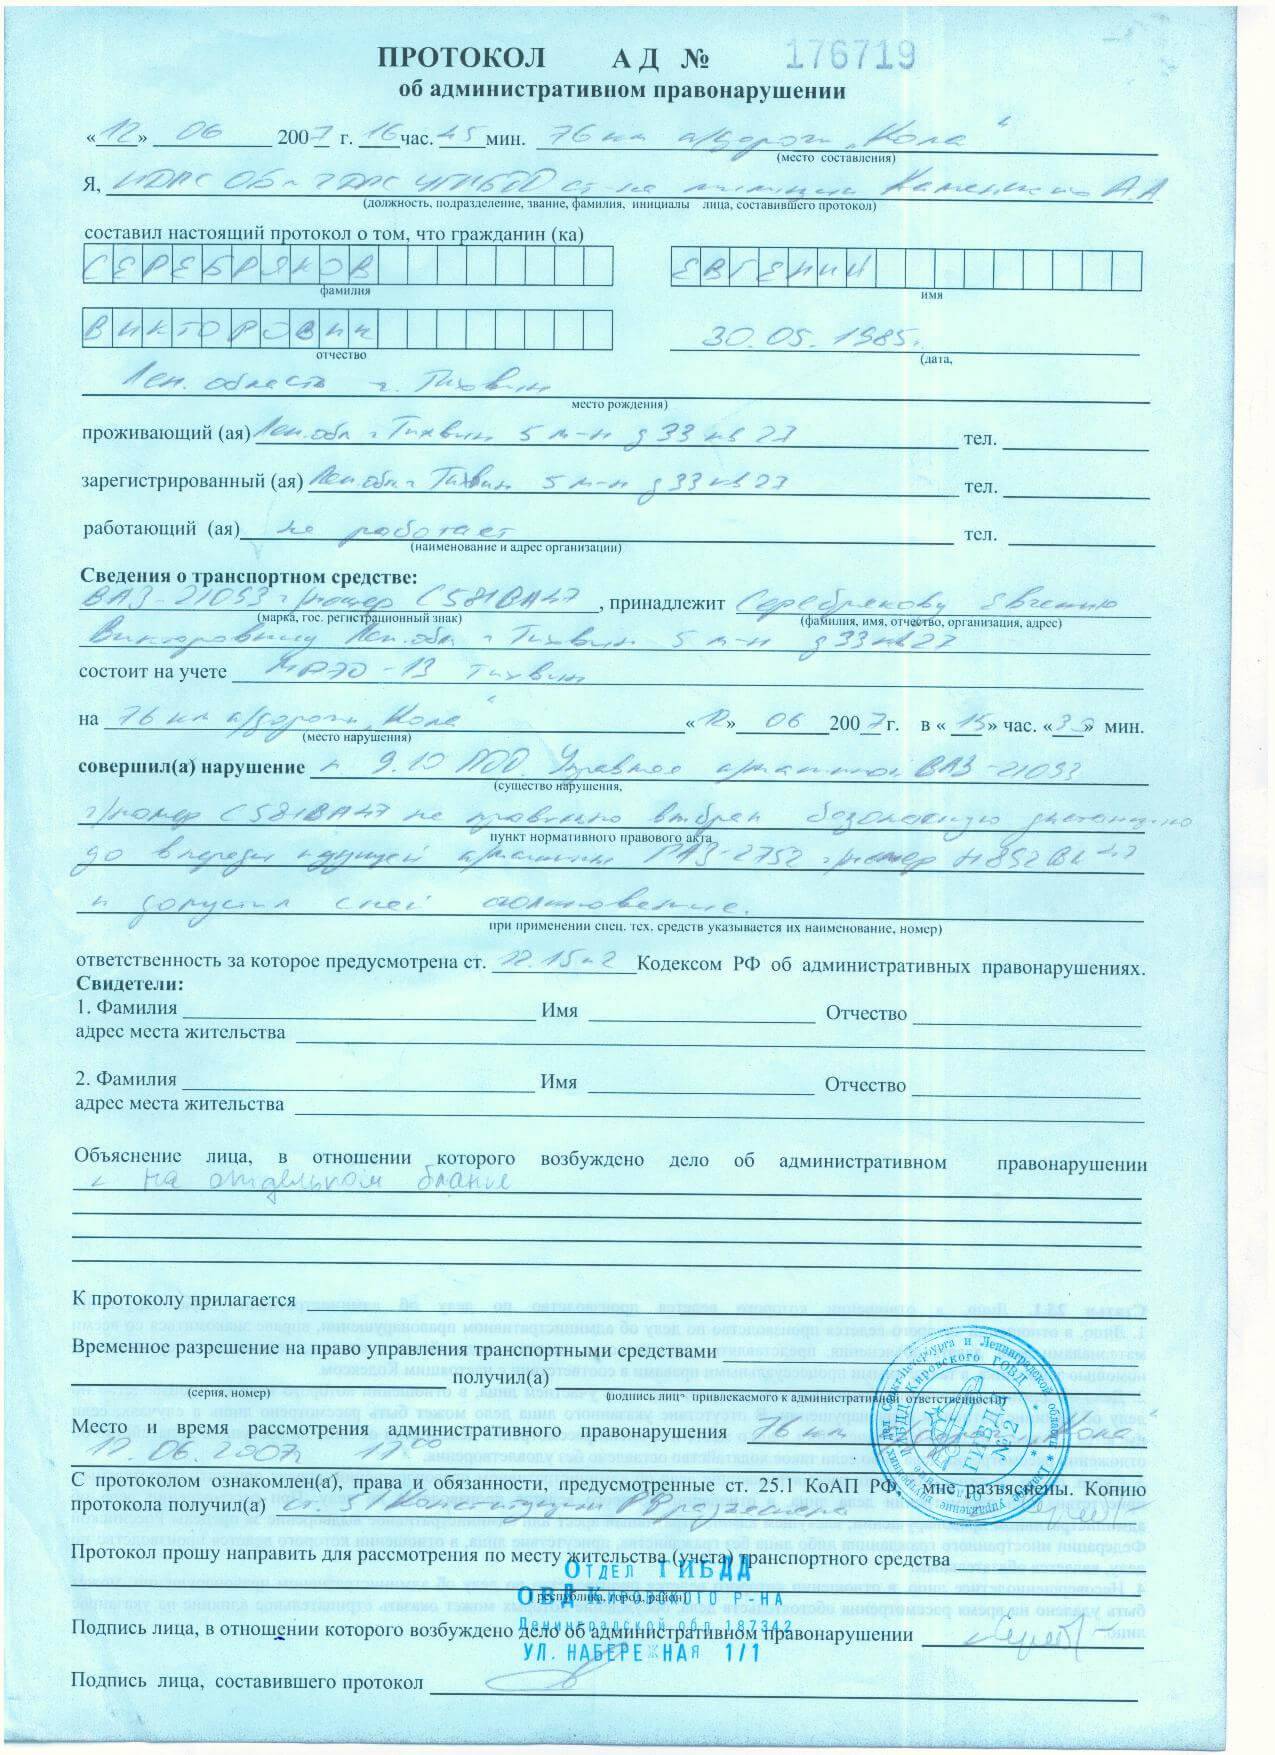 ПРОТОКОЛ АД № 176719
об административном правонарушении
«12» 06 2007 г. 16 час. 45 мин. 76 км а/дороги „Кола“
(место составления)
Я, ИДПС ОБ ДПС УГИБДД ст-на милиции А.А
(должность, подразделение, звание, фамилия, инициалы лица, составившего протокол)
составил настоящий протокол о том, что гражданин (ка)
СЕРЕБРЯКОВ ЕВГЕНИЙ
фамилия имя
ВИКТОРОВИЧ 30.05.1985г.
отчество (дата,
Лен. область г. Тихвин
место рождения)
проживающий (ая) Лен.обл г Тихвин 5 м-н д 33 кв 27 тел.
зарегистрированный (ая) Лен.обл г Тихвин 5 м-н д 33 кв 27 тел.
работающий (ая) не работает тел.
(наименование и адрес организации)
Сведения о транспортном средстве:
ВАЗ-21093 г/номер С581ВА47, принадлежит Серебрякову Евгению
(марка, гос. регистрационный знак) (фамилия, имя, отчество, организация, адрес)
Викторовичу Лен.обл г Тихвин 5 м-н д 33 кв 27
состоит на учете МРЭО-13 Тихвин
на 76 км а/дороги „Кола“ «12» 06 2007 г. в «15» час. «30» мин.
(место нарушения)
совершил(а) нарушение п 9.10 ПДД. Управляя а/машиной ВАЗ-21093
(существо нарушения,
г/номер С581ВА47 не правильно выбрал безопасную дистанцию
пункт нормативного правового акта
до впереди идущей а/машины ГАЗ-2752 г/номер Н852ВК47
и допустил с ней столкновение.
при применении спец. тех. средств указывается их наименование, номер)
ответственность за которое предусмотрена ст. 12.15 ч 2 Кодексом РФ об административных правонарушениях.
Свидетели:
1. Фамилия Имя Отчество
адрес места жительства
2. Фамилия Имя Отчество
адрес места жительства
Объяснение лица, в отношении которого возбуждено дело об административном правонарушении
на отдельном бланке
К протоколу прилагается
Временное разрешение на право управления транспортными средствами
получил(а)
(серия, номер) (подпись лица привлекаемого к административной ответственности)
Место и время рассмотрения административного правонарушения 76 км а/дороги „Кола“
12.06.2007г 17 00
С протоколом ознакомлен(а), права и обязанности, предусмотренные ст. 25.1 КоАП РФ, мне разъяснены. Копию
протокола получил(а) ст. 51 Конституции РФ разъяснена
Протокол прошу направить для рассмотрения по месту жительства (учета) транспортного средства
ОТДЕЛ ГИБДД
(республика, город, район)
ОВД КИРОВСКОГО Р-НА
Ленинградской обл 187342
Подпись лица, в отношении которого возбуждено дело об административном правонарушении
УЛ. НАБЕРЕЖНАЯ 1/1
Подпись лица, составившего протокол